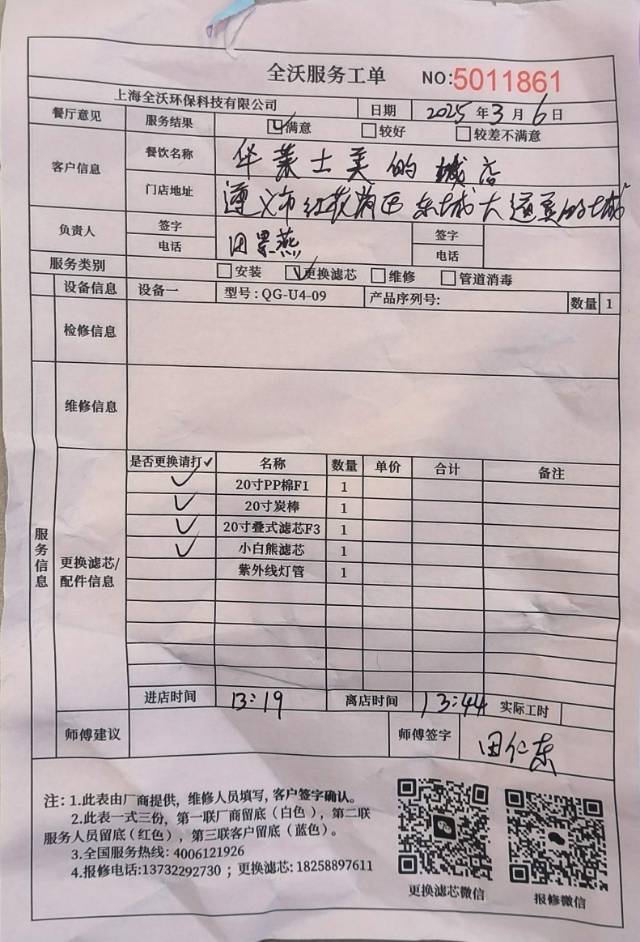 全沃服务工单 NO:5011861
上海全沃环保科技有限公司 日期 2025年3月6日
餐厅意见 服务结果 满意 较好 较差不满意
客户信息 餐饮名称 华莱士美的城店
门店地址 遵义市红花岗区东城大道美的城
负责人 签字 田景燕 签字
电话 电话
服务类别 安装 更换滤芯 维修 管道消毒
设备信息 设备一 型号:QG-U4-09 产品序列号: 数量 1
检修信息
维修信息
服务信息
更换滤芯/配件信息
是否更换请打✓ 名称 数量 单价 合计 备注
✓ 20寸PP棉F1 1
✓ 20寸炭棒 1
✓ 20寸叠式滤芯F3 1
✓ 小白熊滤芯 1
紫外线灯管 1
进店时间 13:19 离店时间 13:44 实际工时
师傅建议 师傅签字 田仁东
注:1.此表由厂商提供,维修人员填写,客户签字确认。
2.此表一式三份,第一联厂商留底(白色),第二联
服务人员留底(红色),第三联客户留底(蓝色)。
3.全国服务热线:4006121926
4.报修电话:13732292730;更换滤芯:18258897611
更换滤芯微信 报修微信